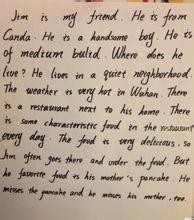 Jim is my friend. He is from
Canda. He is a handsome boy. He is
of medium bulid. Where does he
live? He lives in a quiet neighborhood.
The weather is very hot in Wuhan. There
is a restaurant next to his home. There
is some characteristic food in the restaurant
every day. The food is very delicious. so
Jim often goes there and order the food. But
he favorite food is his mother's pancake. He
misses the pancake and he misses his mother. too.